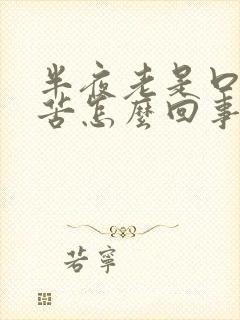 半夜老是口
苦怎麼回事
若寧